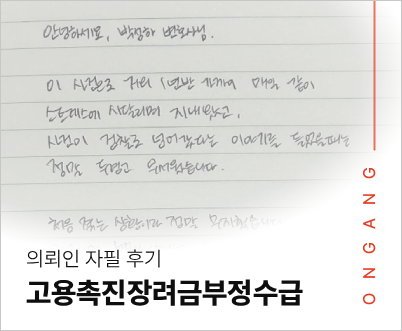 안녕하세요, 박성하 변호사님.
이 사건으로 거의 1년반 가까이 매일 같이
스트레스에 시달리며 지내왔고,
사건이 검찰로 넘어갔다는 이야기를 들었을때는
정말 두렵고 무서웠습니다.
처음 겪는 상황이라 정말 무지했습니
의뢰인 자필 후기
고용촉진장려금부정수급
ONGANG